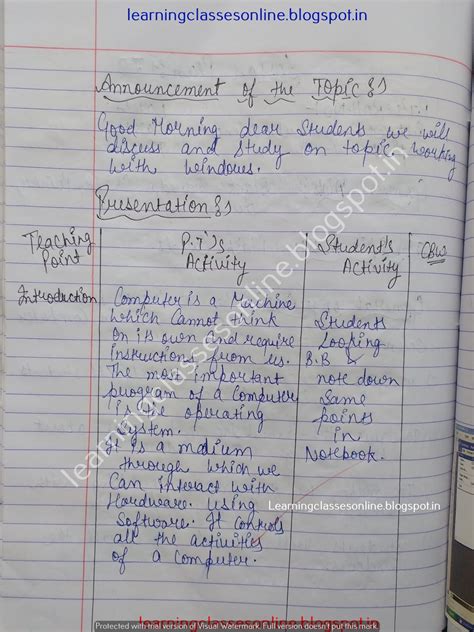 learningclassesonline.blogspot.in
Announcement of the Topic :-
Good Morning dear Students we will
discuss and study on topic working
with windows.
Presentation :-
Teaching Point
P.T's Activity
Student's Activity
CBW
Introduction
Computer is a Machine
which Cannot think
on its own and require
instructions from us.
The most important
program of a Computer
is the operating
system.
It is a medium
through which we
Can interact with
Hardware using
Software. It controls
all the activities
of a Computer.
Students
Looking
B.B &
note down
Same
points
in
Notebook.
learningclassesonline.blogspot.in
Learningclassesonline.blogspot.in
Protected with trial version of Visual Watermark. Full version doesn't put this mark.
learningclassesonline.blogspot.in